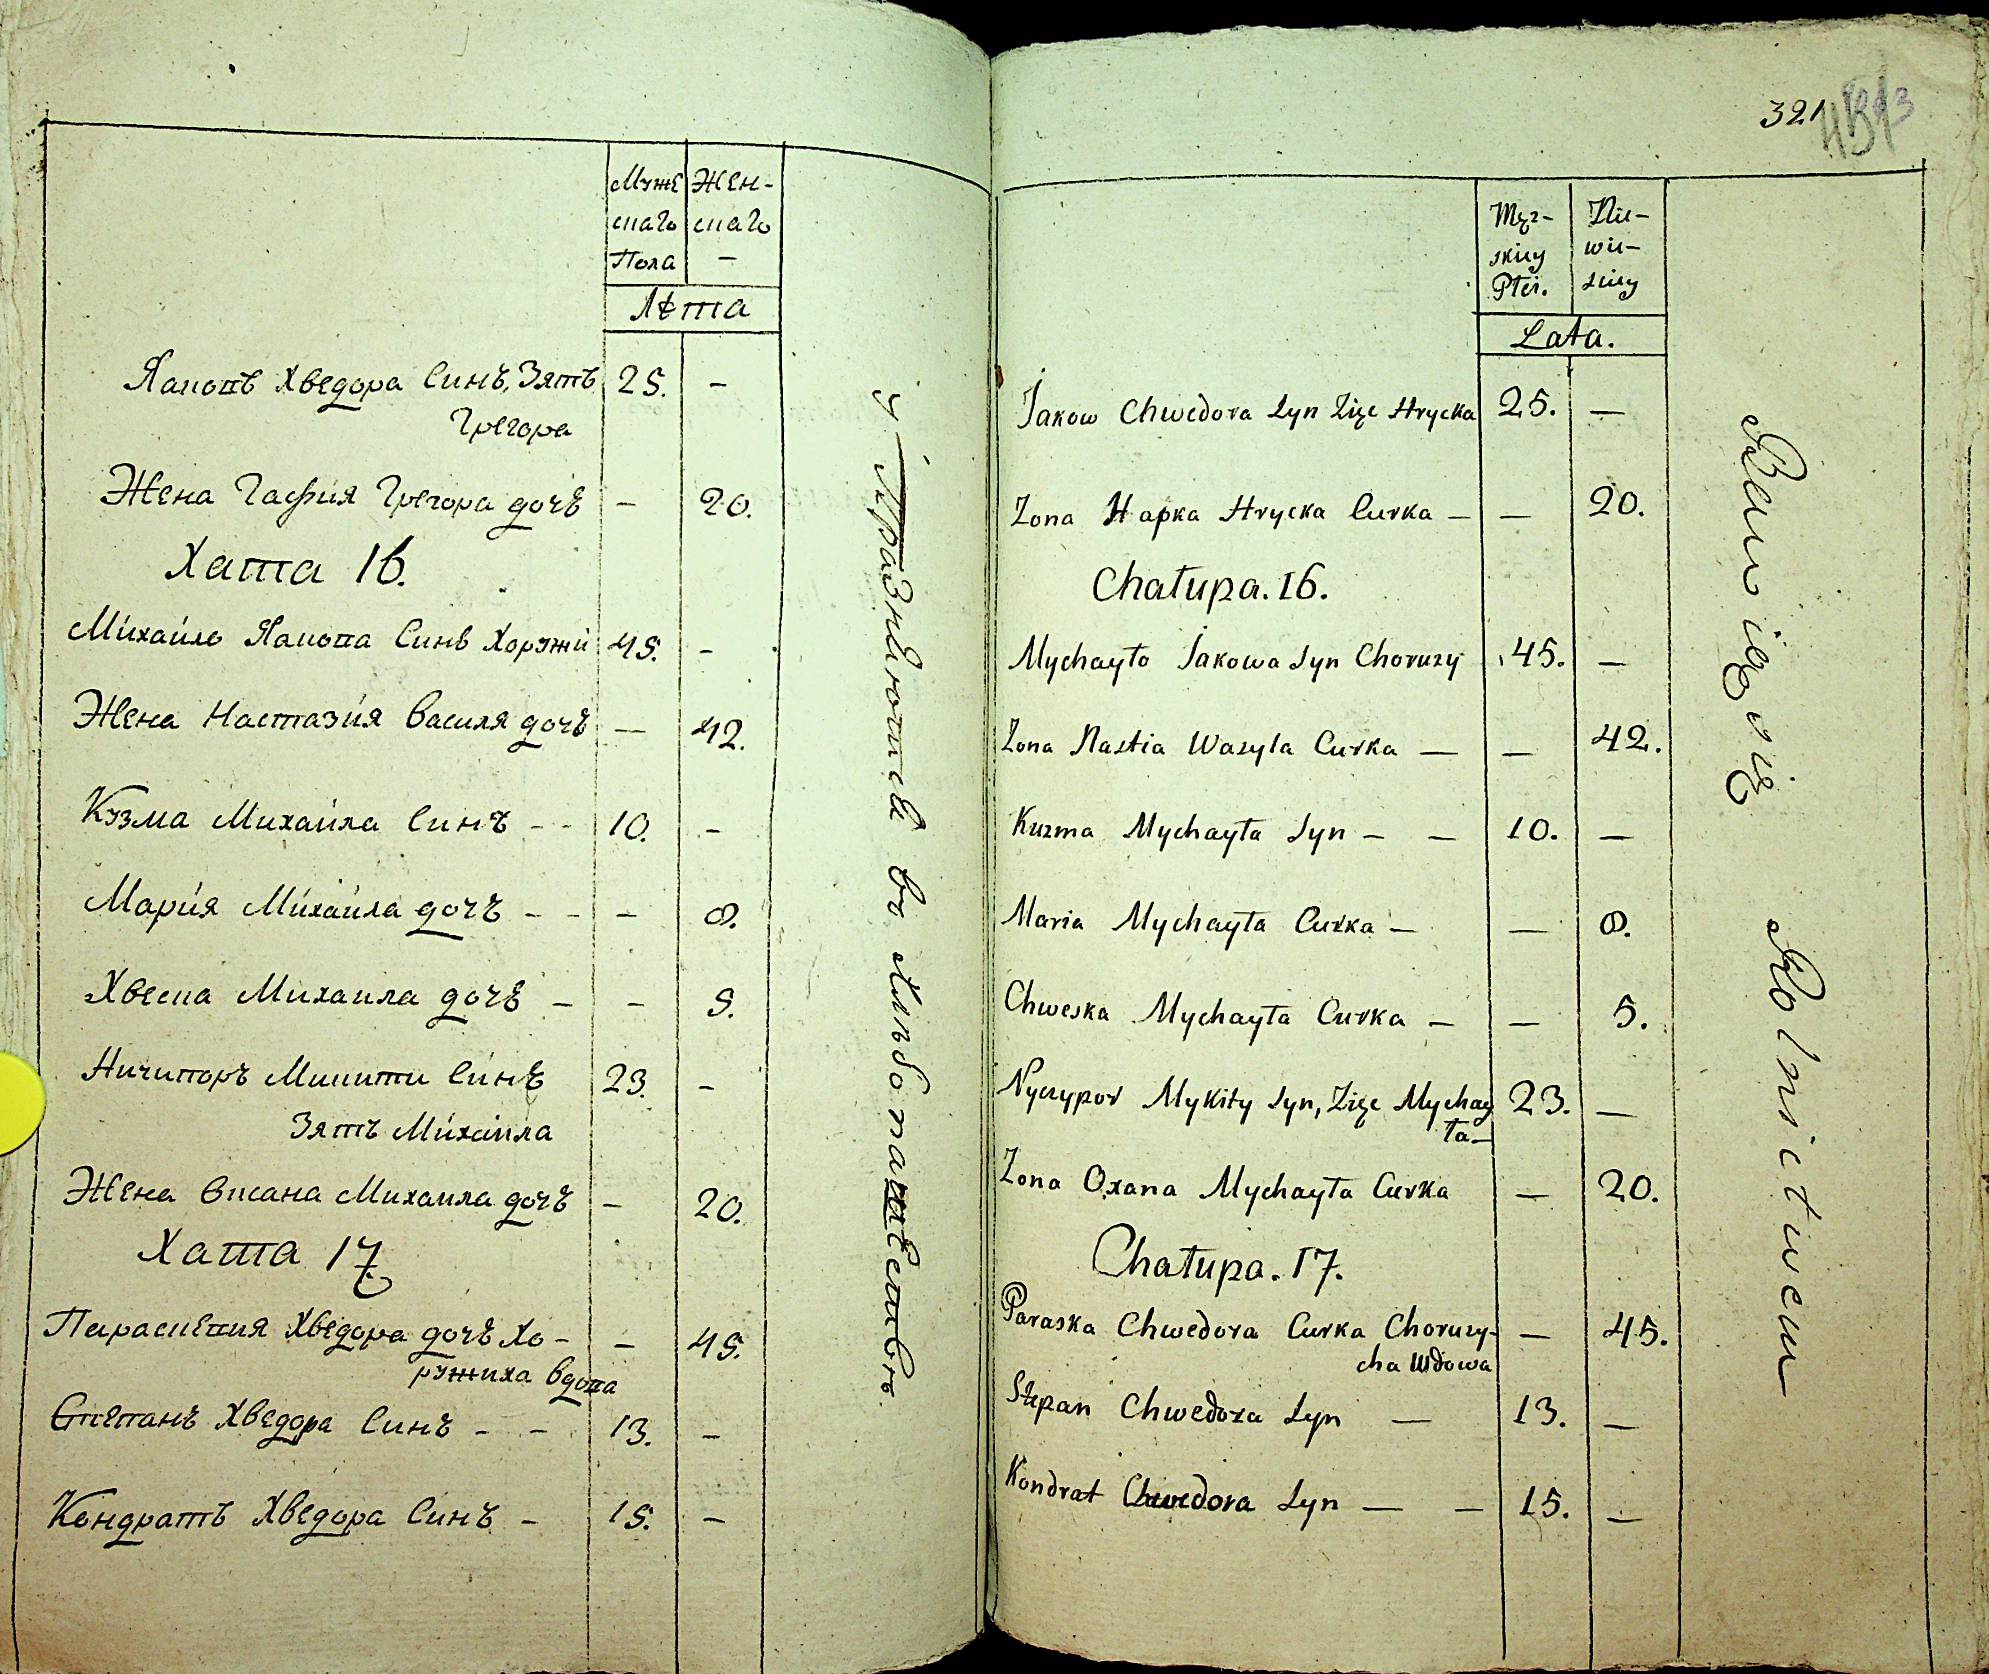 Муже Жен-
скаго скаго
Пола –
Лѣта
Яковъ Хведора Синъ, Зять 25. –
Грегора
Жена Гафия Грегора дочъ – 20.
Хата 16.
Михайло Якова Синъ Хоружи 45. –
Жена Настазия Василя дочъ – 42.
Кузма Михаила Синъ – – 10. –
Мария Михаила дочъ – – – 8.
Хвеска Михаила дочъ – – 5.
Ничипоръ Микити Синъ 23. –
Зять Михаила
Жена Вксана Михаила дочъ – 20.
Хата 17.
Параскевия Хведора дочъ Хо- – 45.
ружиха вдова
Степанъ Хведора Синъ – – 13. –
Кондратъ Хведора Синъ – 15. –
въ
321
Męz- Nie-
skiey wie-
Płci. sciey
Lata.
Jakow Chwedora Syn Zięc Hrycka 25. –
Zona Hapka Hrycka Curka – – 20.
Chałupa. 16.
Mychayło Jakowa Syn Choruzy 45. –
Zona Nastia Wasyla Curka – – 42.
Kuzma Mychayła Syn – – 10. –
Maria Mychayła Curka – – 8.
Chweska Mychayła Curka – – 5.
Nyczypor Mykity Syn, Zięc Mychay 23. –
ła –
Zona Oxana Mychayła Curka – 20.
Chałupa. 17.
Paraska Chwedora Curka Choruzy- – 45.
cha Wdowa
Stepan Chwedora Syn – 13. –
Kondrat Chwedora Syn – – 15. –
Bawią się Rolnictwem